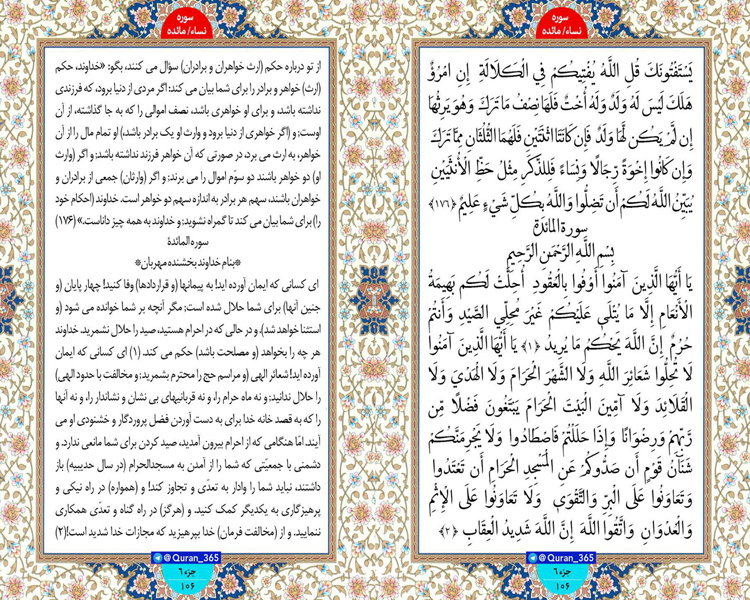 سوره
نساء/ مائده
يَسْتَفْتُونَكَ قُلِ اللَّهُ يُفْتِيكُمْ فِي الْكَلَالَةِ إِنِ امْرُؤٌ
هَلَكَ لَيْسَ لَهُ وَلَدٌ وَلَهُ أُخْتٌ فَلَهَا نِصْفُ مَا تَرَكَ وَهُوَ يَرِثُهَا
إِن لَّمْ يَكُن لَّهَا وَلَدٌ فَإِن كَانَتَا اثْنَتَيْنِ فَلَهُمَا الثُّلُثَانِ مِمَّا تَرَكَ
وَإِن كَانُوا إِخْوَةً رِّجَالًا وَنِسَاءً فَلِلذَّكَرِ مِثْلُ حَظِّ الْأُنثَيَيْنِ
يُبَيِّنُ اللَّهُ لَكُمْ أَن تَضِلُّوا وَاللَّهُ بِكُلِّ شَيْءٍ عَلِيمٌ ﴿۱۷۶﴾
سورة المائدة
بِسْمِ اللَّهِ الرَّحْمَنِ الرَّحِيمِ
يَا أَيُّهَا الَّذِينَ آمَنُوا أَوْفُوا بِالْعُقُودِ أُحِلَّتْ لَكُم بَهِيمَةُ
الْأَنْعَامِ إِلَّا مَا يُتْلَى عَلَيْكُمْ غَيْرَ مُحِلِّي الصَّيْدِ وَأَنتُمْ
حُرُمٌ إِنَّ اللَّهَ يَحْكُمُ مَا يُرِيدُ ﴿۱﴾ يَا أَيُّهَا الَّذِينَ آمَنُوا
لَا تُحِلُّوا شَعَائِرَ اللَّهِ وَلَا الشَّهْرَ الْحَرَامَ وَلَا الْهَدْيَ وَلَا
الْقَلَائِدَ وَلَا آمِّينَ الْبَيْتَ الْحَرَامَ يَبْتَغُونَ فَضْلًا مِّن
رَّبِّهِمْ وَرِضْوَانًا وَإِذَا حَلَلْتُمْ فَاصْطَادُوا وَلَا يَجْرِمَنَّكُمْ
شَنَآنُ قَوْمٍ أَن صَدُّوكُمْ عَنِ الْمَسْجِدِ الْحَرَامِ أَن تَعْتَدُوا
وَتَعَاوَنُوا عَلَى الْبِرِّ وَالتَّقْوَى وَلَا تَعَاوَنُوا عَلَى الْإِثْمِ
وَالْعُدْوَانِ وَاتَّقُوا اللَّهَ إِنَّ اللَّهَ شَدِيدُ الْعِقَابِ ﴿۲﴾
@Quran_365
جزء ۶
۱۰۶
سوره
نساء/ مائده
از تو درباره حکم (ارث خواهران و برادران) سؤال می کنند، بگو: «خداوند، حکم
ارث) خواهر و برادر را برای شما بیان می کند: اگر مردی از دنیا برود، که فرزندی
نداشته باشد، و برای او خواهری باشد، نصف اموالی را که به جا گذاشته، از آن
اوست؛ و (اگر خواهری از دنیا برود و وارث او یک برادر باشد) او تمام مال را از آن
خواهر، به ارث می برد، در صورتی که آن خواهر فرزند نداشته باشد؛ و اگر (وارث
او) دو خواهر باشند دو سوّم اموال را می برند؛ و اگر (وارثان) جمعی از برادران و
خواهران باشند، سهم هر برادر به اندازه سهم دو خواهر است. خداوند (احکام خود
را) برای شما بیان می کند تا گمراه نشوید؛ و خداوند به همه چیز داناست.» (۱۷۶)
سورة المائدة
*بنام خداوند بخشنده مهربان*
ای کسانی که ایمان آورده اید! به پیمانها (و قراردادها) وفا کنید! چهار پایان (و
جنین آنها) برای شما حلال شده است؛ مگر آنچه بر شما خوانده می شود (و
استثنا خواهد شد). و در حالی که در احرام هستید، صید را حلال نشمرید. خداوند
هر چه را بخواهد (و مصلحت باشد) حکم می کند. (۱) ای کسانی که ایمان
آورده اید! شعائر الهی (و مراسم حج را محترم بشمرید؛ و مخالفت با حدود الهی)
را حلال ندانید؛ و نه ماه حرام را، و نه قربانیهای بی نشان و نشاندار را، و نه آنها
را که به قصد خانه خدا برای به دست آوردن فضل پروردگار و خشنودی او می
آیند. امّا هنگامی که از احرام بیرون آمدید، صید کردن برای شما مانعی ندارد. و
دشمنی با جمعیّتی که شما را از آمدن به مسجدالحرام (در سال حدیبیه) باز
داشتند، نباید شما را وادار به تعدّی و تجاوز کند! و (همواره) در راه نیکی و
پرهیزگاری به یکدیگر کمک کنید. و (هرگز) در راه گناه و تعدّی همکاری
ننمایید. و از (مخالفت فرمان) خدا بپرهیزید که مجازات خدا شدید است!(۲)
@Quran_365
جزء ۶
۱۰۶